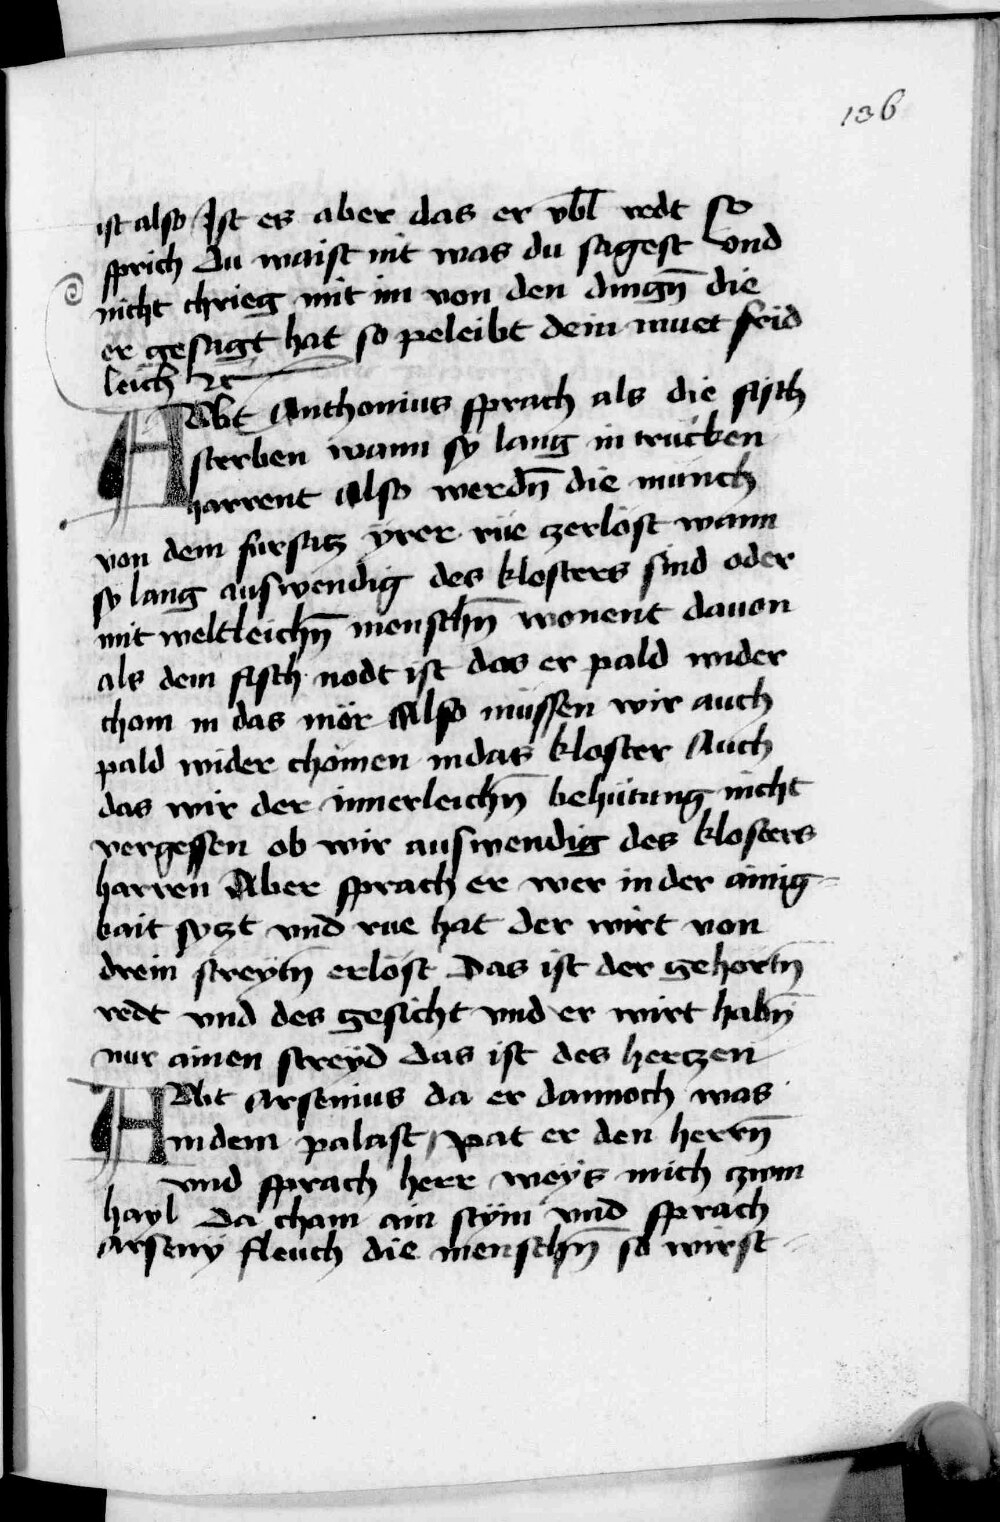 136
ist also Ist es aber das er vbl redt so
sprich Du waist nit was du sagest vnd
nicht chrieg mit im von den dingn̄ die
er gesagt hat so peleibt dein muet frid
leich ꝛc
Abt Anthonius sprach als die fisch
sterben wann sy lang in trucken
harrent Also werdn̄ die münch
von dem fursatz yrer rüe zerlöst wann
sy lang auswendig des klosters sind oder
mit weltleichn̄ menschn̄ wonent dauon
als dem fisch nodt ist das er pald wider
chom in das mör Also müssen wir auch
pald wider chömen in das kloster Auch
das wir der innerleichn̄ behütung nicht
vergessen ob wir auswendig des klosters
harren Aber sprach er wer in der ainig-
kait syczt vnd rue hat der wirt von
drein streytn̄ erlöst Das ist der gehörtn̄
redt vnd des gesicht vnd er wirt habn̄
nur ainen streyd das ist des herczen
Abt arsenius da er dannoch was
in dem palast pat er den herrn̄
vnd sprach herr weys mich zwm
hayl Da cham ain stym vnd sprach
arseny fleuch die menschn̄ so wirst